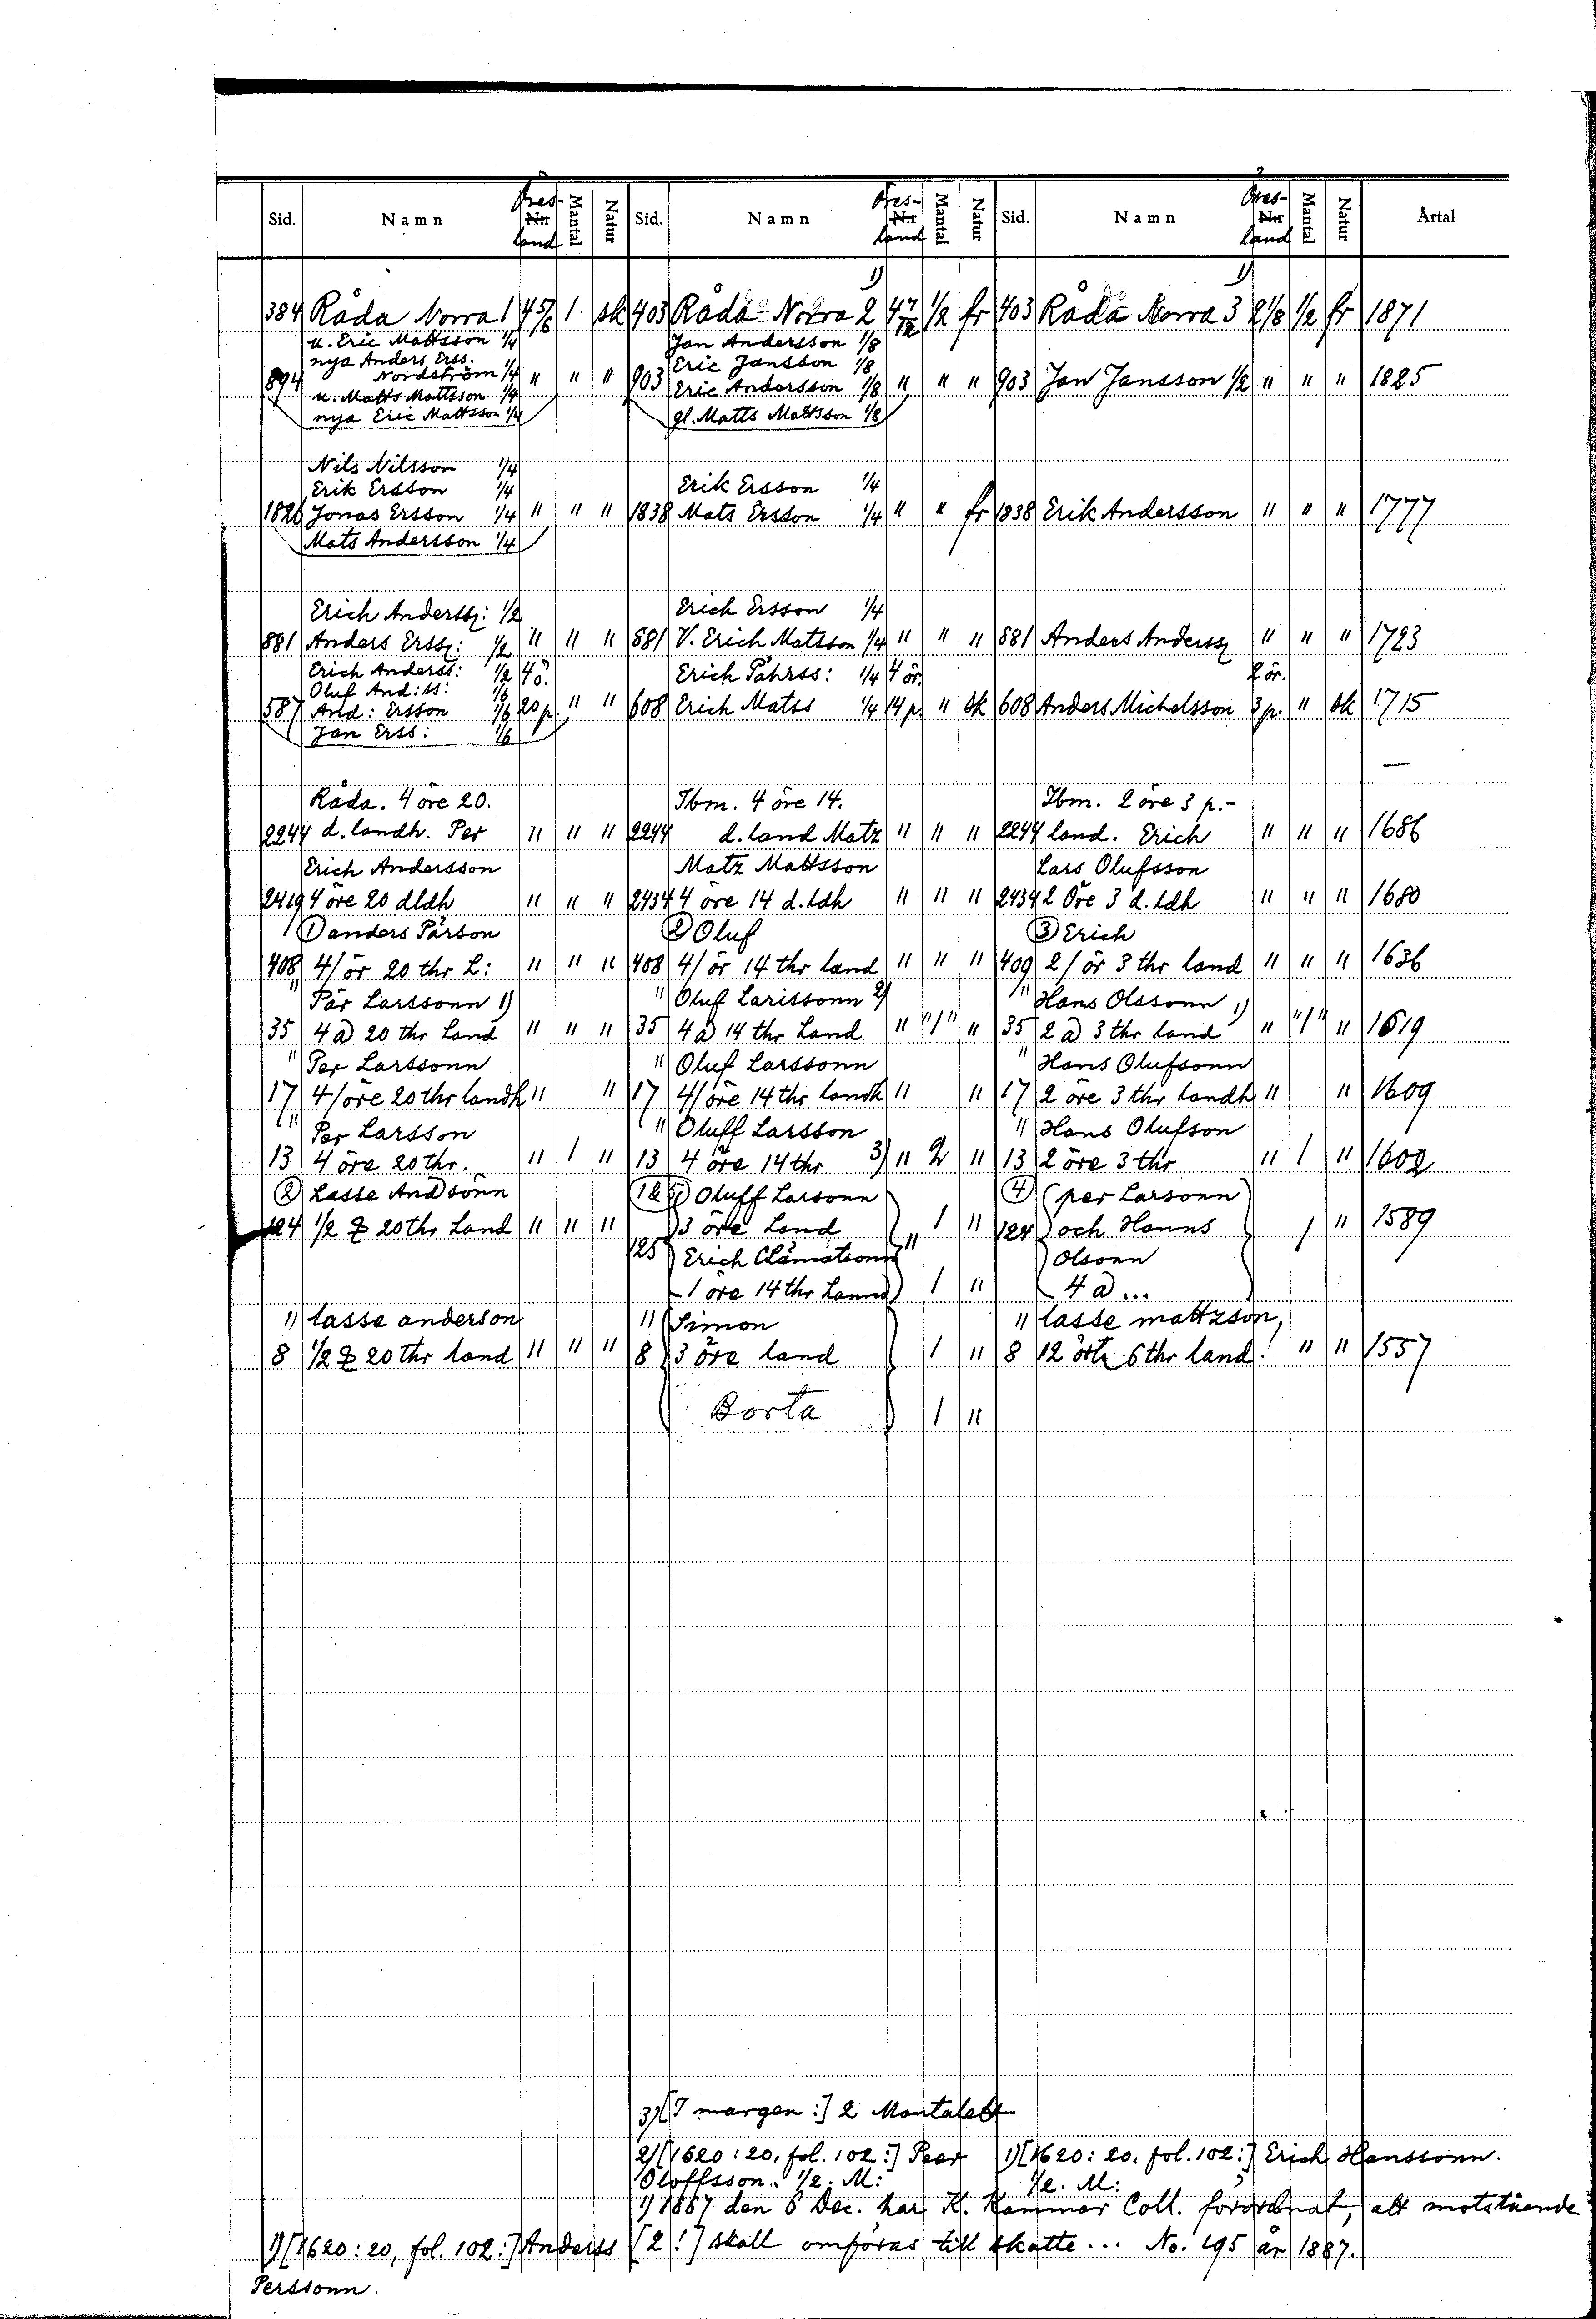 Sid. Namn Öres- Nr land Mantal Natur Sid. Namn Öres- Nr land Mantal Natur Sid. Namn Öres- Nr land Mantal Natur Årtal
384 Råda Norra 1 4 5/6 1 sk 403 Råda Norra 2 1) 4 7/12 1/2 fr 403 Råda Norra 3 1) 2 1/8 1/2 fr 1871
u. Eric Mattsson 1/4 Jan Andersson 1/8
nya Anders Erss. Eric Jansson 1/8
894 Nordström 1/4 " " " 903 Eric Andersson 1/8 " " " 903 Jan Jansson 1/2 " " " 1825
u. Matts Mattsson 1/4
nya Eric Mattsson 1/4 gl. Matts Mattsson 1/8
Nils Nilsson 1/4
Erik Ersson 1/4 Erik Ersson 1/4
1826 Jonas Ersson 1/4 " " " 1838 Mats Ersson 1/4 " " fr 1838 Erik Andersson " " " 1777
Mats Andersson 1/4
Erich Anderss: 1/2 Erich Ersson 1/4
881 Anders Erss: 1/2 " " " 881 V. Erich Matsson 1/4 " " " 881 Anders Anderss " " " 1723
Erich Anderss: 1/2 4ö. Erich Påhrss: 1/4 4 ör. 2 ör.
Oluf And:ss: 1/6
587 And: Ersson 1/6 20 p. " " 608 Erich Matss 1/4 14 p. " sk 608 Anders Michelsson 3 p. " sk 1715
Jan Erss: 1/6
—
Råda. 4 öre 20. Ibm. 4 öre 14. Ibm. 2 öre 3 p.-
2244 d. landh. Per " " " 2244 d. land Matz " " " 2244 land. Erich " " " 1686
Erich Andersson Matz Mattsson Lars Olufsson
2419 4 öre 20 dldh " " " 2434 4 öre 14 d. ldh " " " 2434 2 Öre 3 d. ldh " " " 1680
1) anders Pärson 2) Oluf 3) Erich
408 4/ ör 20 thr L: " " " 408 4/ ör 14 thr land " " " 409 2/ ör 3 thr land " " " 1636
" Pär Larssonn 1) " Oluf Larissonn 2) " Hans Olssonn 1)
35 4 a 20 thr Land " " " 35 4 a 14 thr Land " "/" " 35 2 a 3 thr land " "/" " 1619
" Per Larssonn " Oluf Larssonn " Hans Olufsonn
17 4/ öre 20 thr landh " " 17 4/ öre 14 thr landh " " 17 2 öre 3 thr landh " " 1609
" Per Larsson " Oluff Larsson " Hans Olufson
13 4 öre 20 thr. " 1 " 13 4 öre 14 thr 3) " 2 " 13 2 öre 3 thr " 1 " 1602
2) Lasse Andsonn Oluff Larsonn 4) (per Larsonn
124 1/2 20 thr Land " " " 3 öre Land 1 " 124 och Hanns 1 " 1589
125 Erich " Olsonn
1 öre 14 thr Lannd 1 " 4 a ...
" lasse anderson " Simon " lasse mattzson,
8 1/2 20 thr land " " " 8 3 öre land 1 " 8 12 6 thr land! " " 1557
Borta 1 "
3) [I margen:] 2 Mantalet
2) [1620: 20, fol. 102:] Peer 1) [1620: 20, fol. 102:] Erich Hanssonn.
Oloffsson. 1/2. M: 1/2. M:
1) 1887 den 6 Dec. har K. Kammar Coll. förordnat, att motstående
1) [1620: 20, fol. 102:] Anderss [2!] skall omföras till skatte... No. 195 år 1887.
Perssonn.